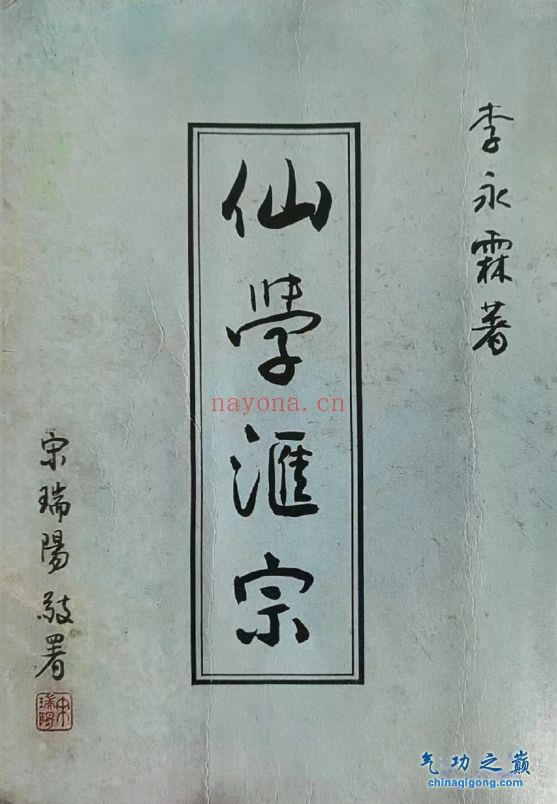 李永霖著
仙學滙宗
宋瑞陽敬署
宋瑞陽
nayona.cn
气功之巅
chinaqigong.com